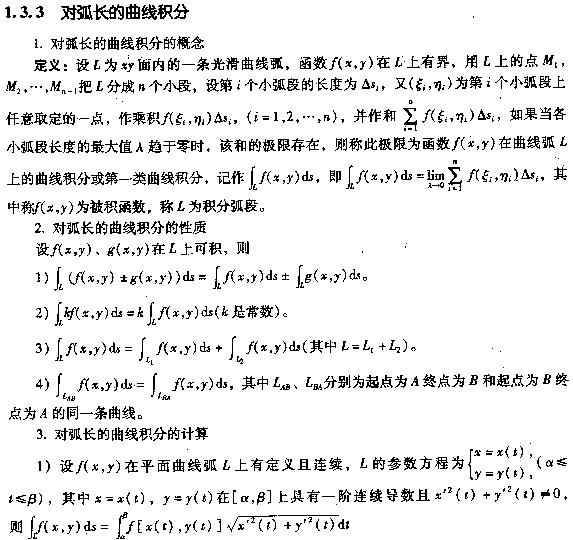 1.3.3 对弧长的曲线积分
1. 对弧长的曲线积分的概念
定义：设 L 为 xy 面内的一条光滑曲线弧，函数 f(x,y) 在 L 上有界，用 L 上的点 M₁，
M₂，⋯，Mₙ₋₁把 L 分成 n 个小段，设第 i 个小弧段的长度为 Δsᵢ，又(ξᵢ,ηᵢ)为第 i 个小弧段上
任意取定的一点，作乘积f(ξᵢ,ηᵢ)Δsᵢ，(i=1,2,⋯,n)，并作和 ∑_{i=1}^{n} f(ξᵢ,ηᵢ)Δsᵢ，如果当各
小弧段长度的最大值 λ 趋于零时，该和的极限存在，则称此极限为函数 f(x,y) 在曲线弧 L
上的曲线积分或第一类曲线积分，记作 ∫_L f(x,y)ds，即 ∫_L f(x,y)ds = lim_{λ→0} ∑_{i=1}^{n} f(ξᵢ,ηᵢ)Δsᵢ，其
中称f(x,y)为被积函数，称 L 为积分弧段。
2. 对弧长的曲线积分的性质
设f(x,y)、g(x,y)在 L 上可积，则
1) ∫_L (f(x,y) ± g(x,y))ds = ∫_L f(x,y)ds ± ∫_L g(x,y)ds。
2) ∫_L kf(x,y)ds = k∫_L f(x,y)ds(k 是常数)。
3) ∫_L f(x,y)ds = ∫_{L₁} f(x,y)ds + ∫_{L₂} f(x,y)ds(其中 L=L₁+L₂)。
4) ∫_{L_{AB}} f(x,y)ds = ∫_{L_{BA}} f(x,y)ds，其中 L_{AB}、L_{BA}分别为起点为 A 终点为 B 和起点为 B 终
点为 A 的同一条曲线。
3. 对弧长的曲线积分的计算
1) 设 f(x,y) 在平面曲线弧 L 上有定义且连续，L 的参数方程为{x = x(t)，y = y(t)，(α≤
t≤β)，其中 x = x(t)，y = y(t)在[α,β]上具有一阶连续导数且 x′²(t) + y′²(t) ≠0，
则 ∫_L f(x,y)ds = ∫_α^β f[x(t),y(t)]√(x′²(t) + y′²(t))dt